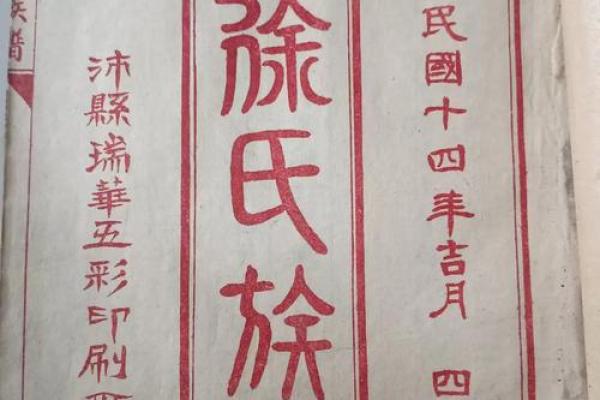 民國十四年吉月 四
徐氏族
沛縣瑞華五彩印刷
族譜